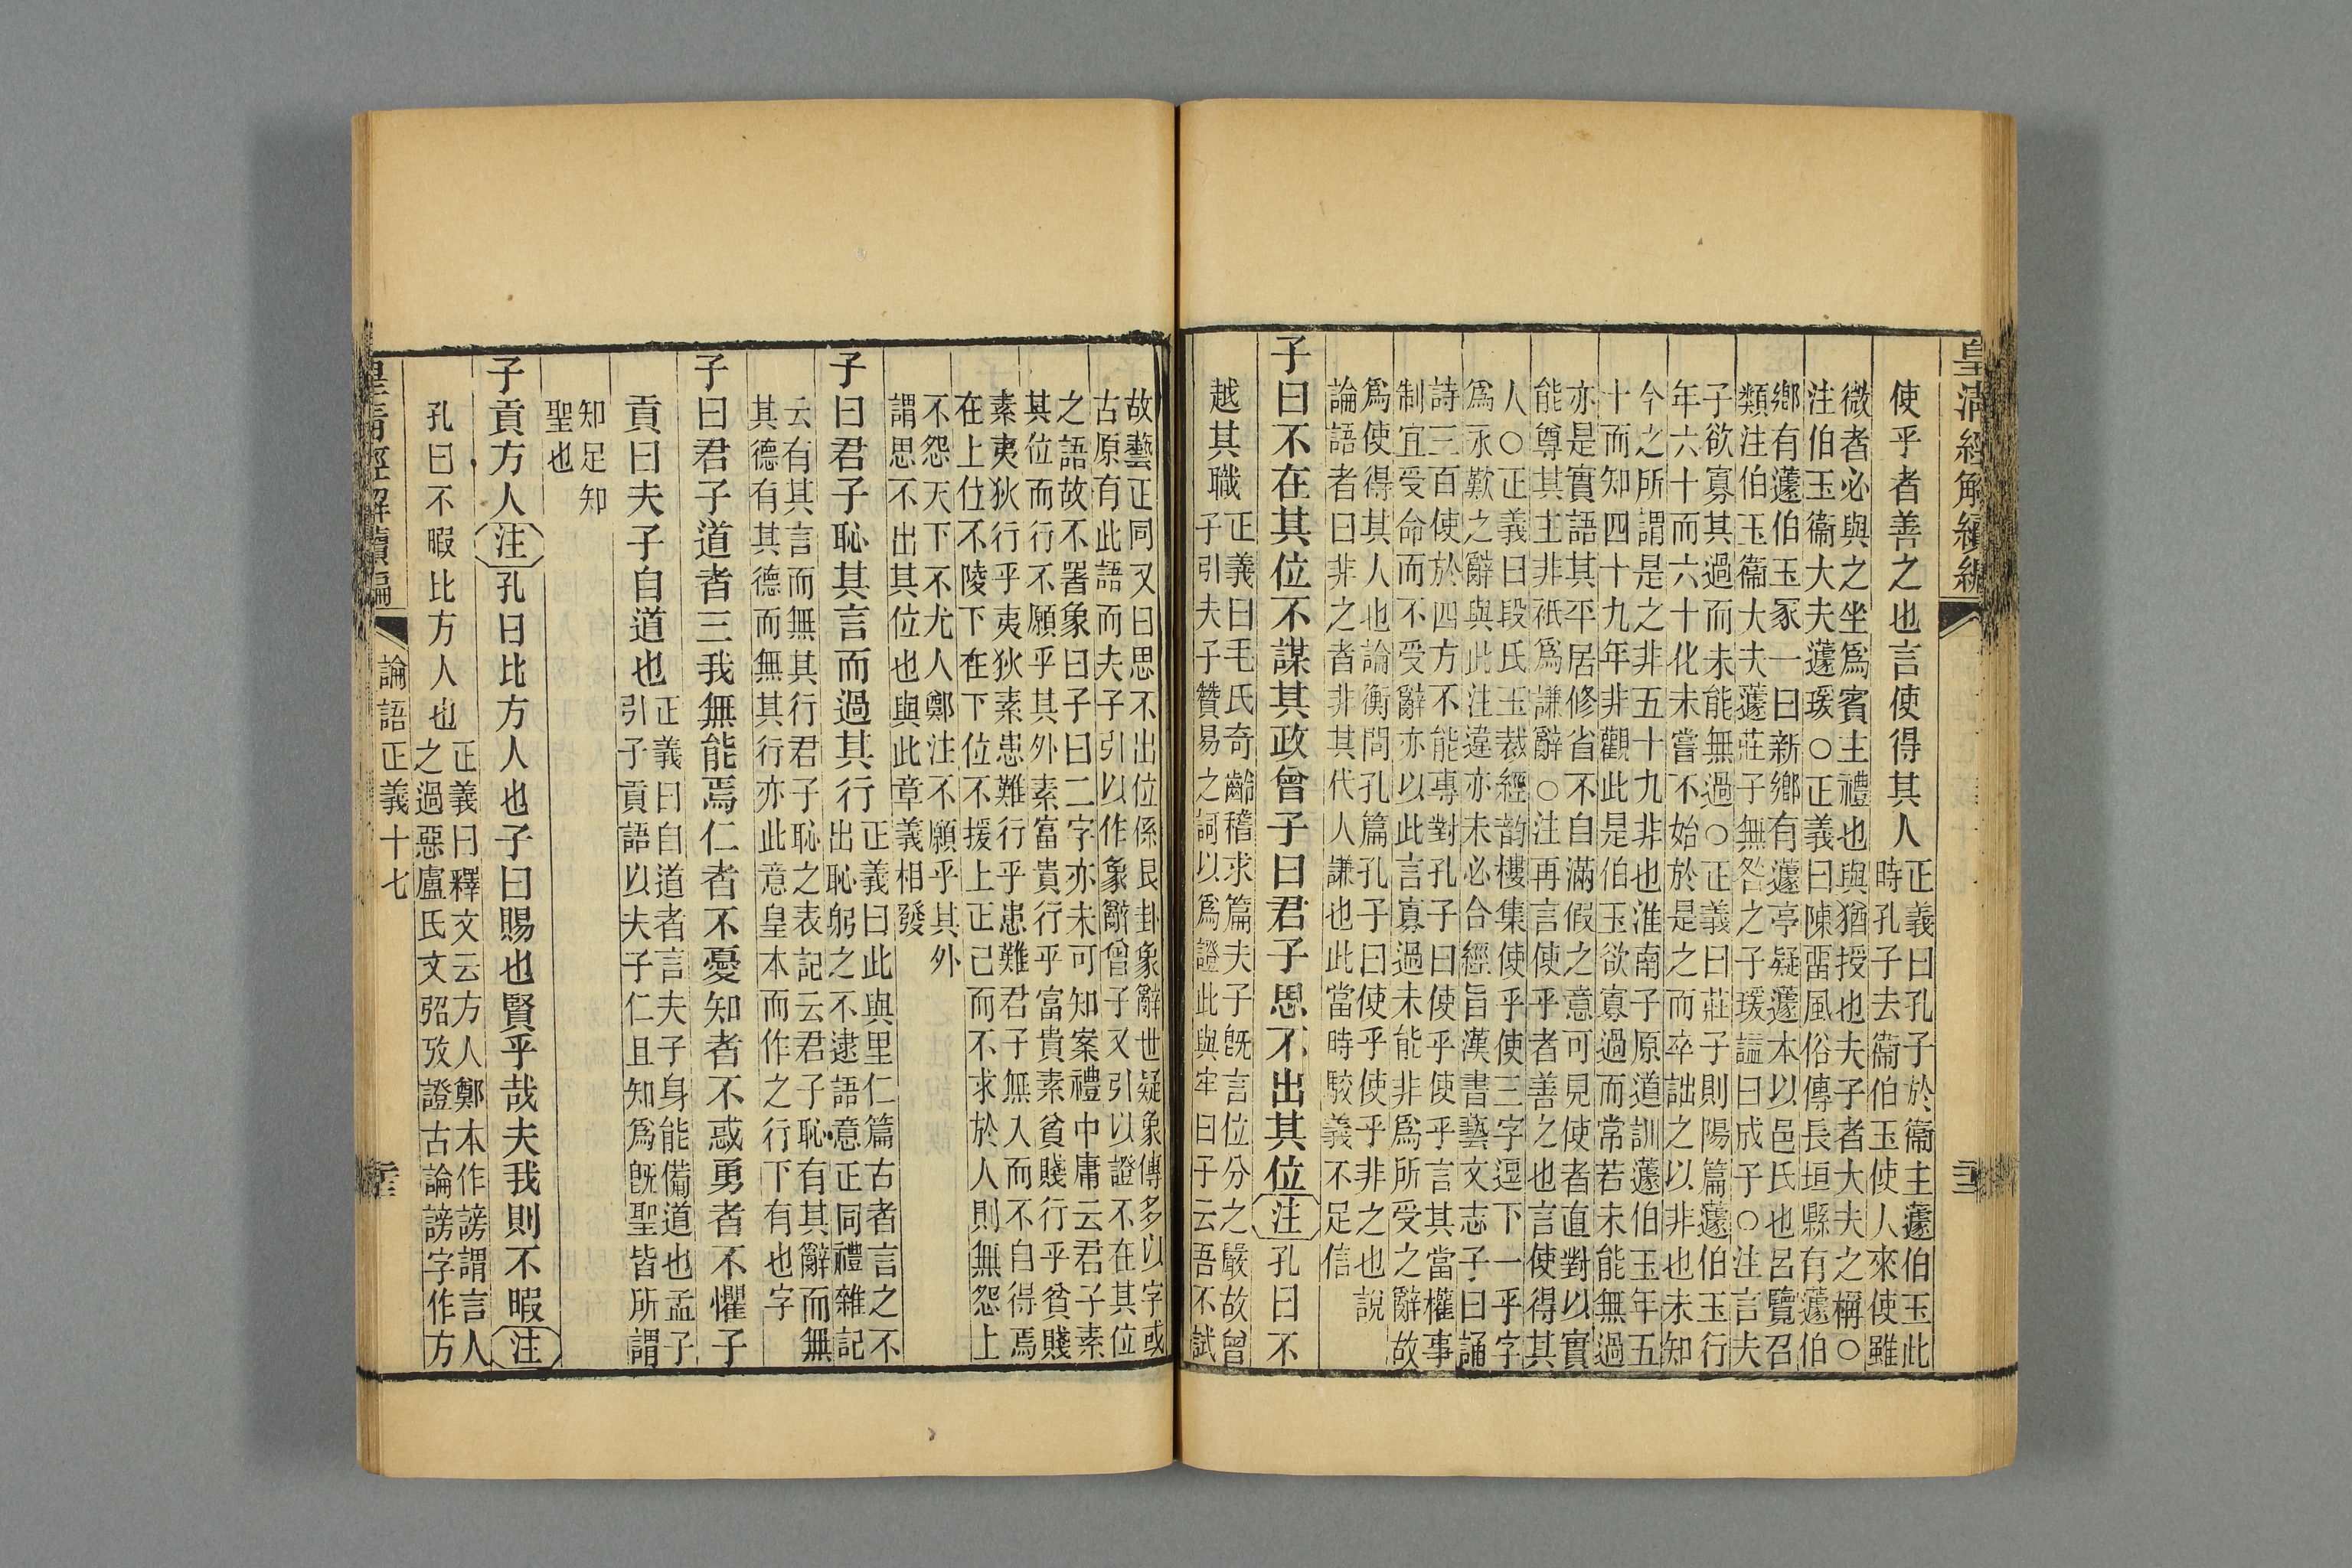 皇清經解續編
三
使乎者善之也言使得其人
正義曰孔子於衞主蘧伯玉此
時孔子去衞伯玉使人來使雖
微者必與之坐爲賓主禮也與猶授也夫子者大夫之稱○
注伯玉衞大夫蘧瑗○正義曰陳畱風俗傳長垣縣有蘧伯
鄕有蘧伯玉冢一曰新鄕有蘧亭疑蘧本以邑氏也呂覽召
類注伯玉衞大夫蘧莊子無咎之子瑗諡曰成子○注言夫
子欲寡其過而未能無過○正義曰莊子則陽篇蘧伯玉行
年六十而六十化未嘗不始於是之而卒詘之以非也未知
今之所謂是之非五十九非也淮南子原道訓蘧伯玉年五
十而知四十九年非觀此是伯玉欲寡過而常若未能無過
亦是實語其平居修省不自滿假之意可見使者直對以實
能尊其主非祇爲謙辭○注再言使乎者善之也言使得其
人○正義曰段氏玉裁經韵樓集使乎使三字逗下一乎字
爲永歎之辭與此注違亦未必合經旨漢書藝文志子曰誦
詩三百使於四方不能專對孔子曰使乎使乎言其當權事
制宜受命而不受辭亦以此言寡過未能非爲所受之辭故
爲使得其人也論衡問孔篇孔子曰使乎使乎非之也說
論語者曰非之者非其代人謙也此當時駮義不足信
子曰不在其位不謀其政曾子曰君子思不出其位注孔曰不
越其職
正義曰毛氏奇齡稽求篇夫子旣言位分之嚴故曾
子引夫子贊易之詞以爲證此與牢曰子云吾不試
故藝正同又曰思不出位係艮卦象辭世疑象傳多以字或
古原有此語而夫子引以作象辭曾子又引以證不在其位
之語故不署象曰子曰二字亦未可知案禮中庸云君子素
其位而行不願乎其外素富貴行乎富貴素貧賤行乎貧賤
素夷狄行乎夷狄素患難行乎患難君子無入而不自得焉
在上位不陵下在下位不援上正己而不求於人則無怨上
不怨天下不尤人鄭注不願乎其外
謂思不出其位也與此章義相發
子曰君子恥其言而過其行
正義曰此與里仁篇古者言之不
出恥躬之不逮語意正同禮雜記
云有其言而無其行君子恥之表記云君子恥有其辭而無
其德有其德而無其行亦此意皇本而作之行下有也字
子曰君子道者三我無能焉仁者不憂知者不惑勇者不懼子
貢曰夫子自道也
正義曰自道者言夫子身能備道也孟子
引子貢語以夫子仁且知爲旣聖皆所謂
知足知
聖也
子貢方人注孔曰比方人也子曰賜也賢乎哉夫我則不暇注
孔曰不暇比方人也
正義曰釋文云方人鄭本作謗謂言人
之過惡盧氏文弨攷證古論謗字作方
皇清經解續編
論語正義十七